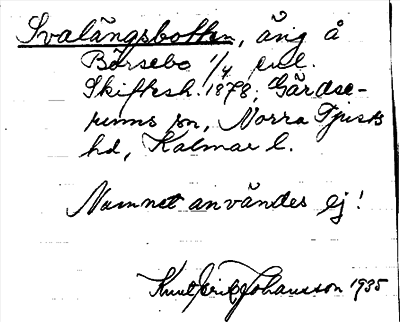 Svalängsbotten, äng å
Börsebo 1/4 enl.
Skiftesh. 1878, Gärdse-
rums sn, Norra Tjusts
hd, Kalmar l.
Namnet användes ej!
Knut Erik Johansson 1935